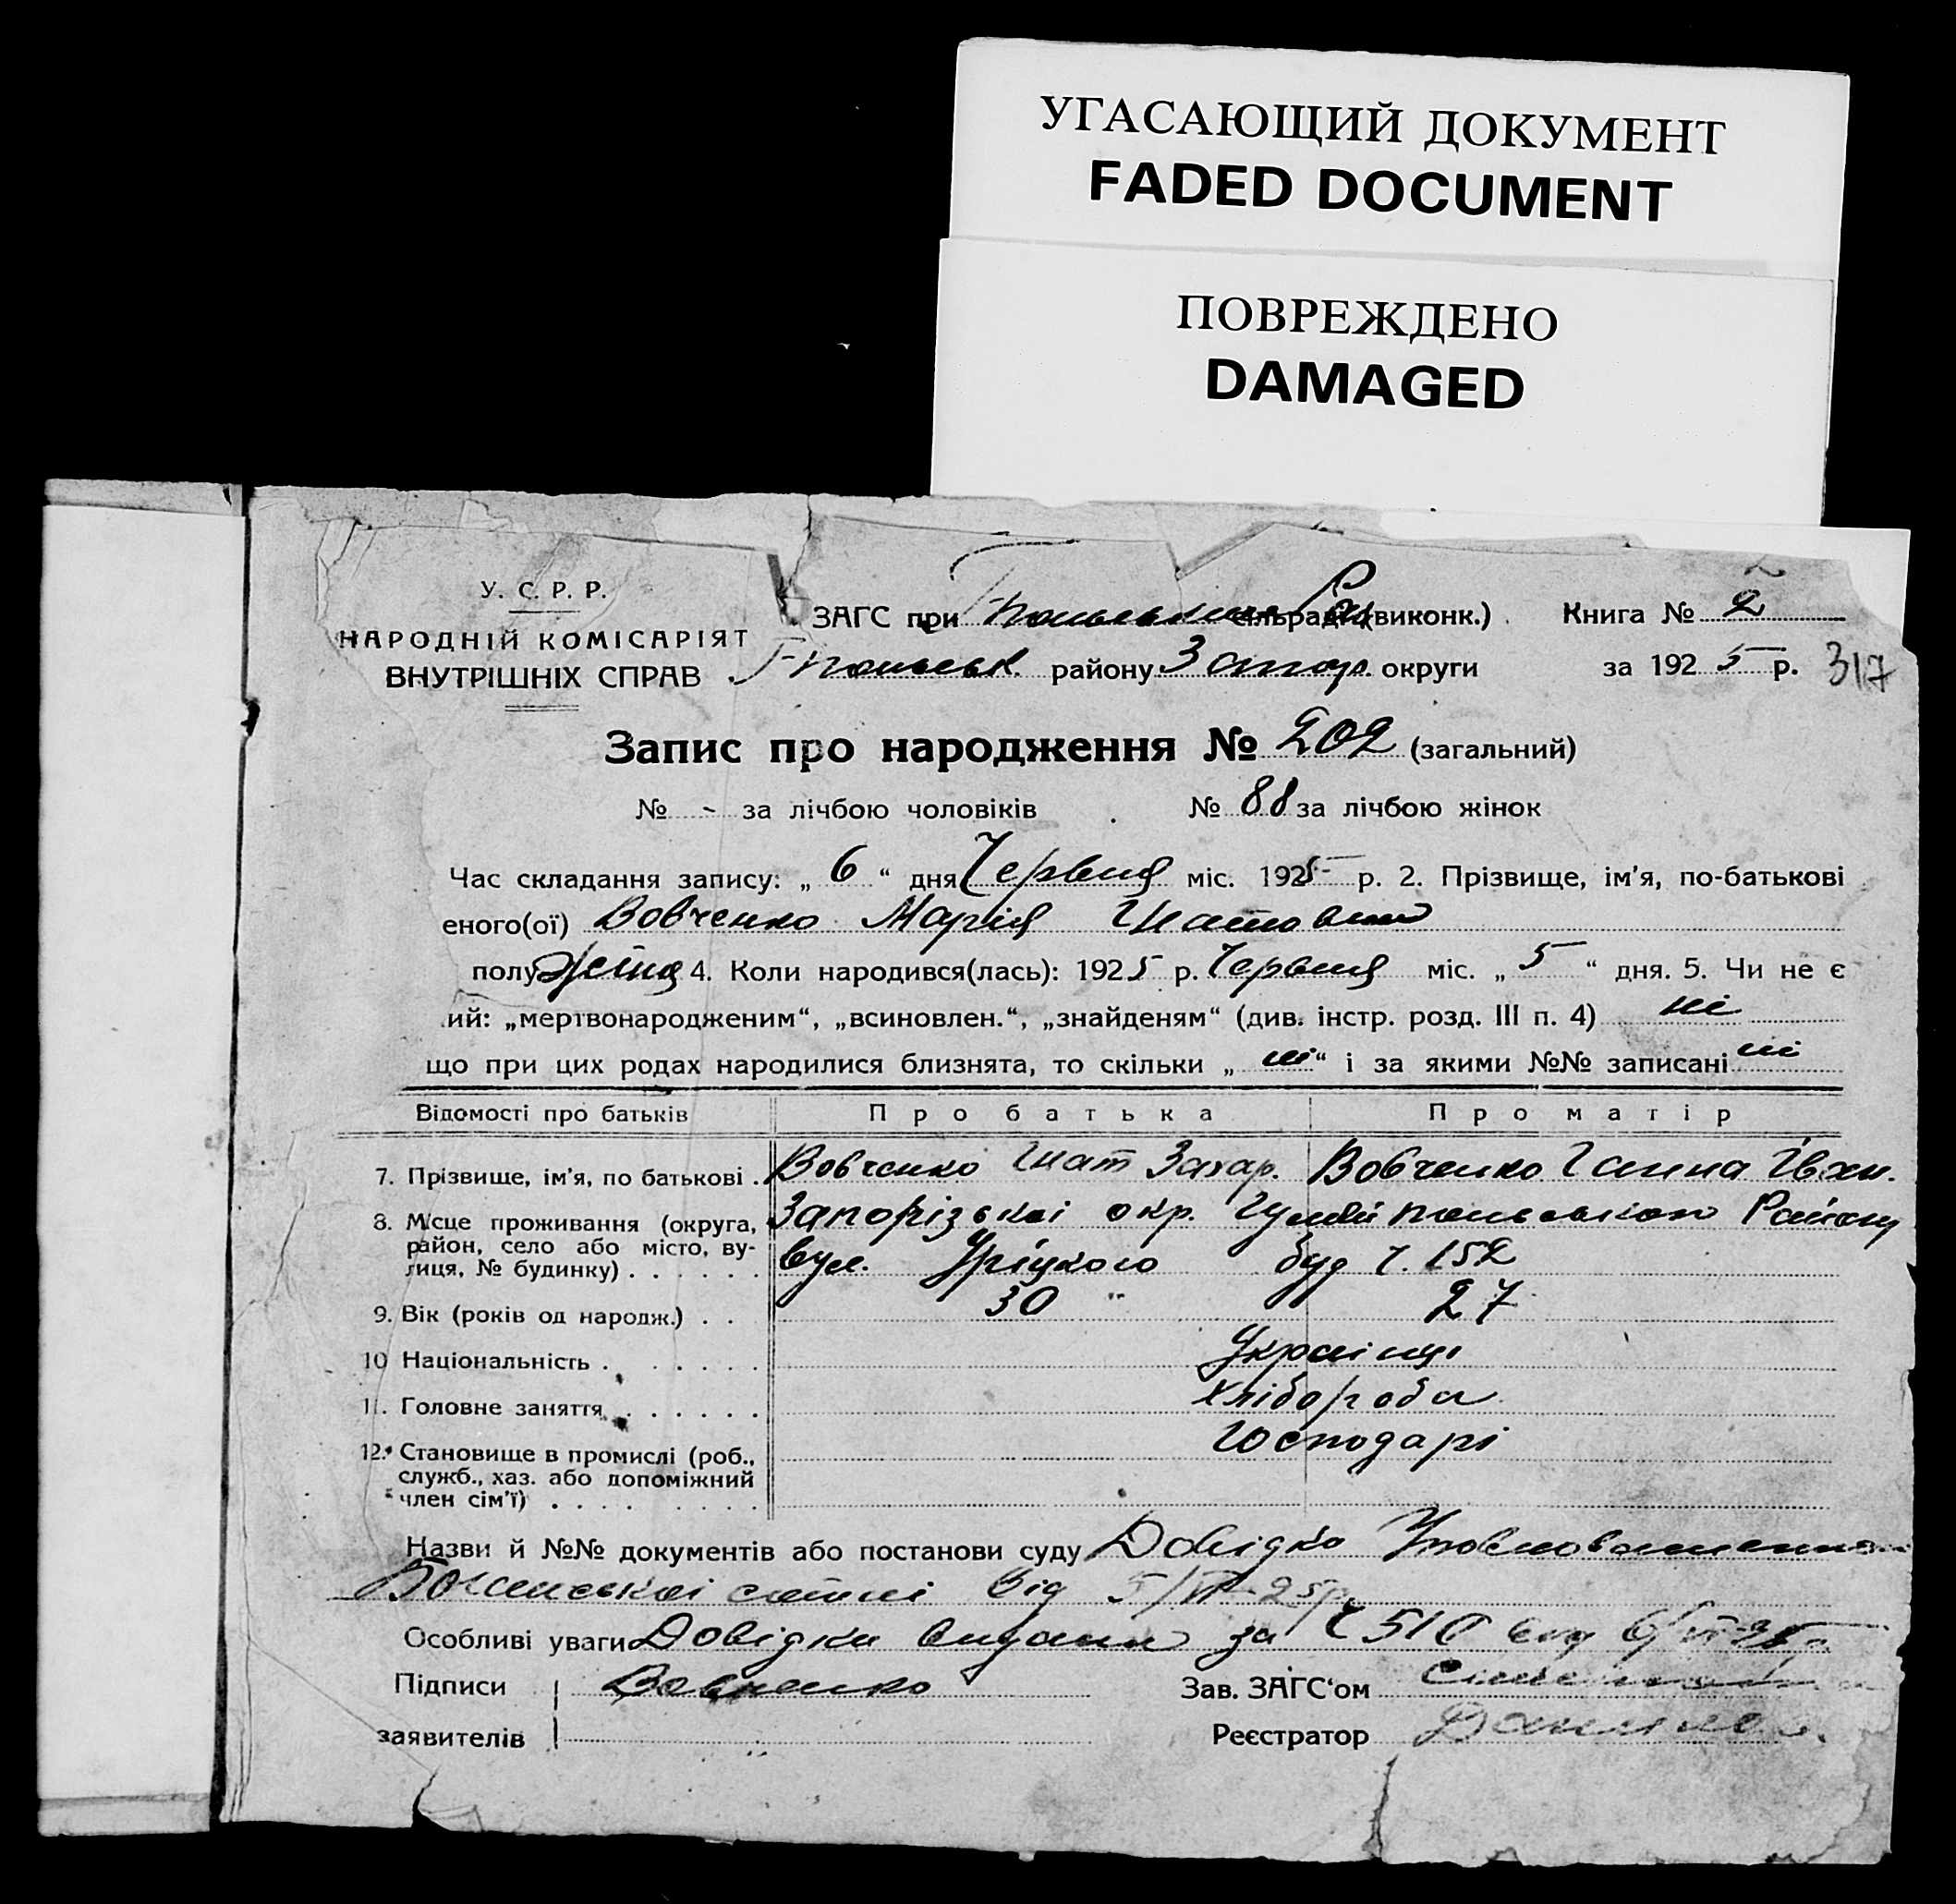 УГАСАЮЩИЙ ДОКУМЕНТ
FADED DOCUMENT
ПОВРЕЖДЕНО
DAMAGED
У. С. Р. Р.
НАРОДНІЙ КОМІСАРІЯТ
ВНУТРІШНІХ СПРАВ
ЗАГС при сільраді (виконк.)
Книга № 2
району Запор. округи
за 1925 р. 317
Запис про народження № 202 (загальний)
№ - за лічбою чоловіків № 88 за лічбою жінок
Час складання запису: „ 6 “ дня Червня міс. 1925 р. 2. Прізвище, ім’я, по-батькові
еного(ої) Вовченко Марія Гнатовна
полу жіноч 4. Коли народився(лась): 1925 р. Червня міс. „ 5 “ дня. 5. Чи не є
ий: „мертвонародженим“, „всиновлен.“, „знайденям“ (див. інстр. розд. III п. 4) ні
що при цих родах народилися близнята, то скільки „ ні “ і за якими №№ записані ні
Відомості про батьків Про батька Про матір
7. Прізвище, ім’я, по батькові . Вовченко Гнат Захар. Вовченко Ганна Івхн.
8. Місце проживання (округа, Запорізькоі окр. Гуляйпольського Району
район, село або місто, ву-
лиця, № будинку) . . . . . . вул. Уріцкого буд ч. 152
9. Вік (років од народж.) . . 30 27
10 Національність . . . . . . Украінці
11. Головне заняття . . . . . . хлібороба
12. Становище в промислі (роб., Господарі
служб., хаз. або допоміжний
член сім’ї) . . . . . . . . .
Назви й №№ документів або постанови суду Довідка Уповноваженно
сотні від 5/VI-25р.
Особливі уваги Довідки видани за ч 510 від 6/VI-25р
Підписи Вовченко Зав. ЗАГС‘ом
заявителів Реєстратор